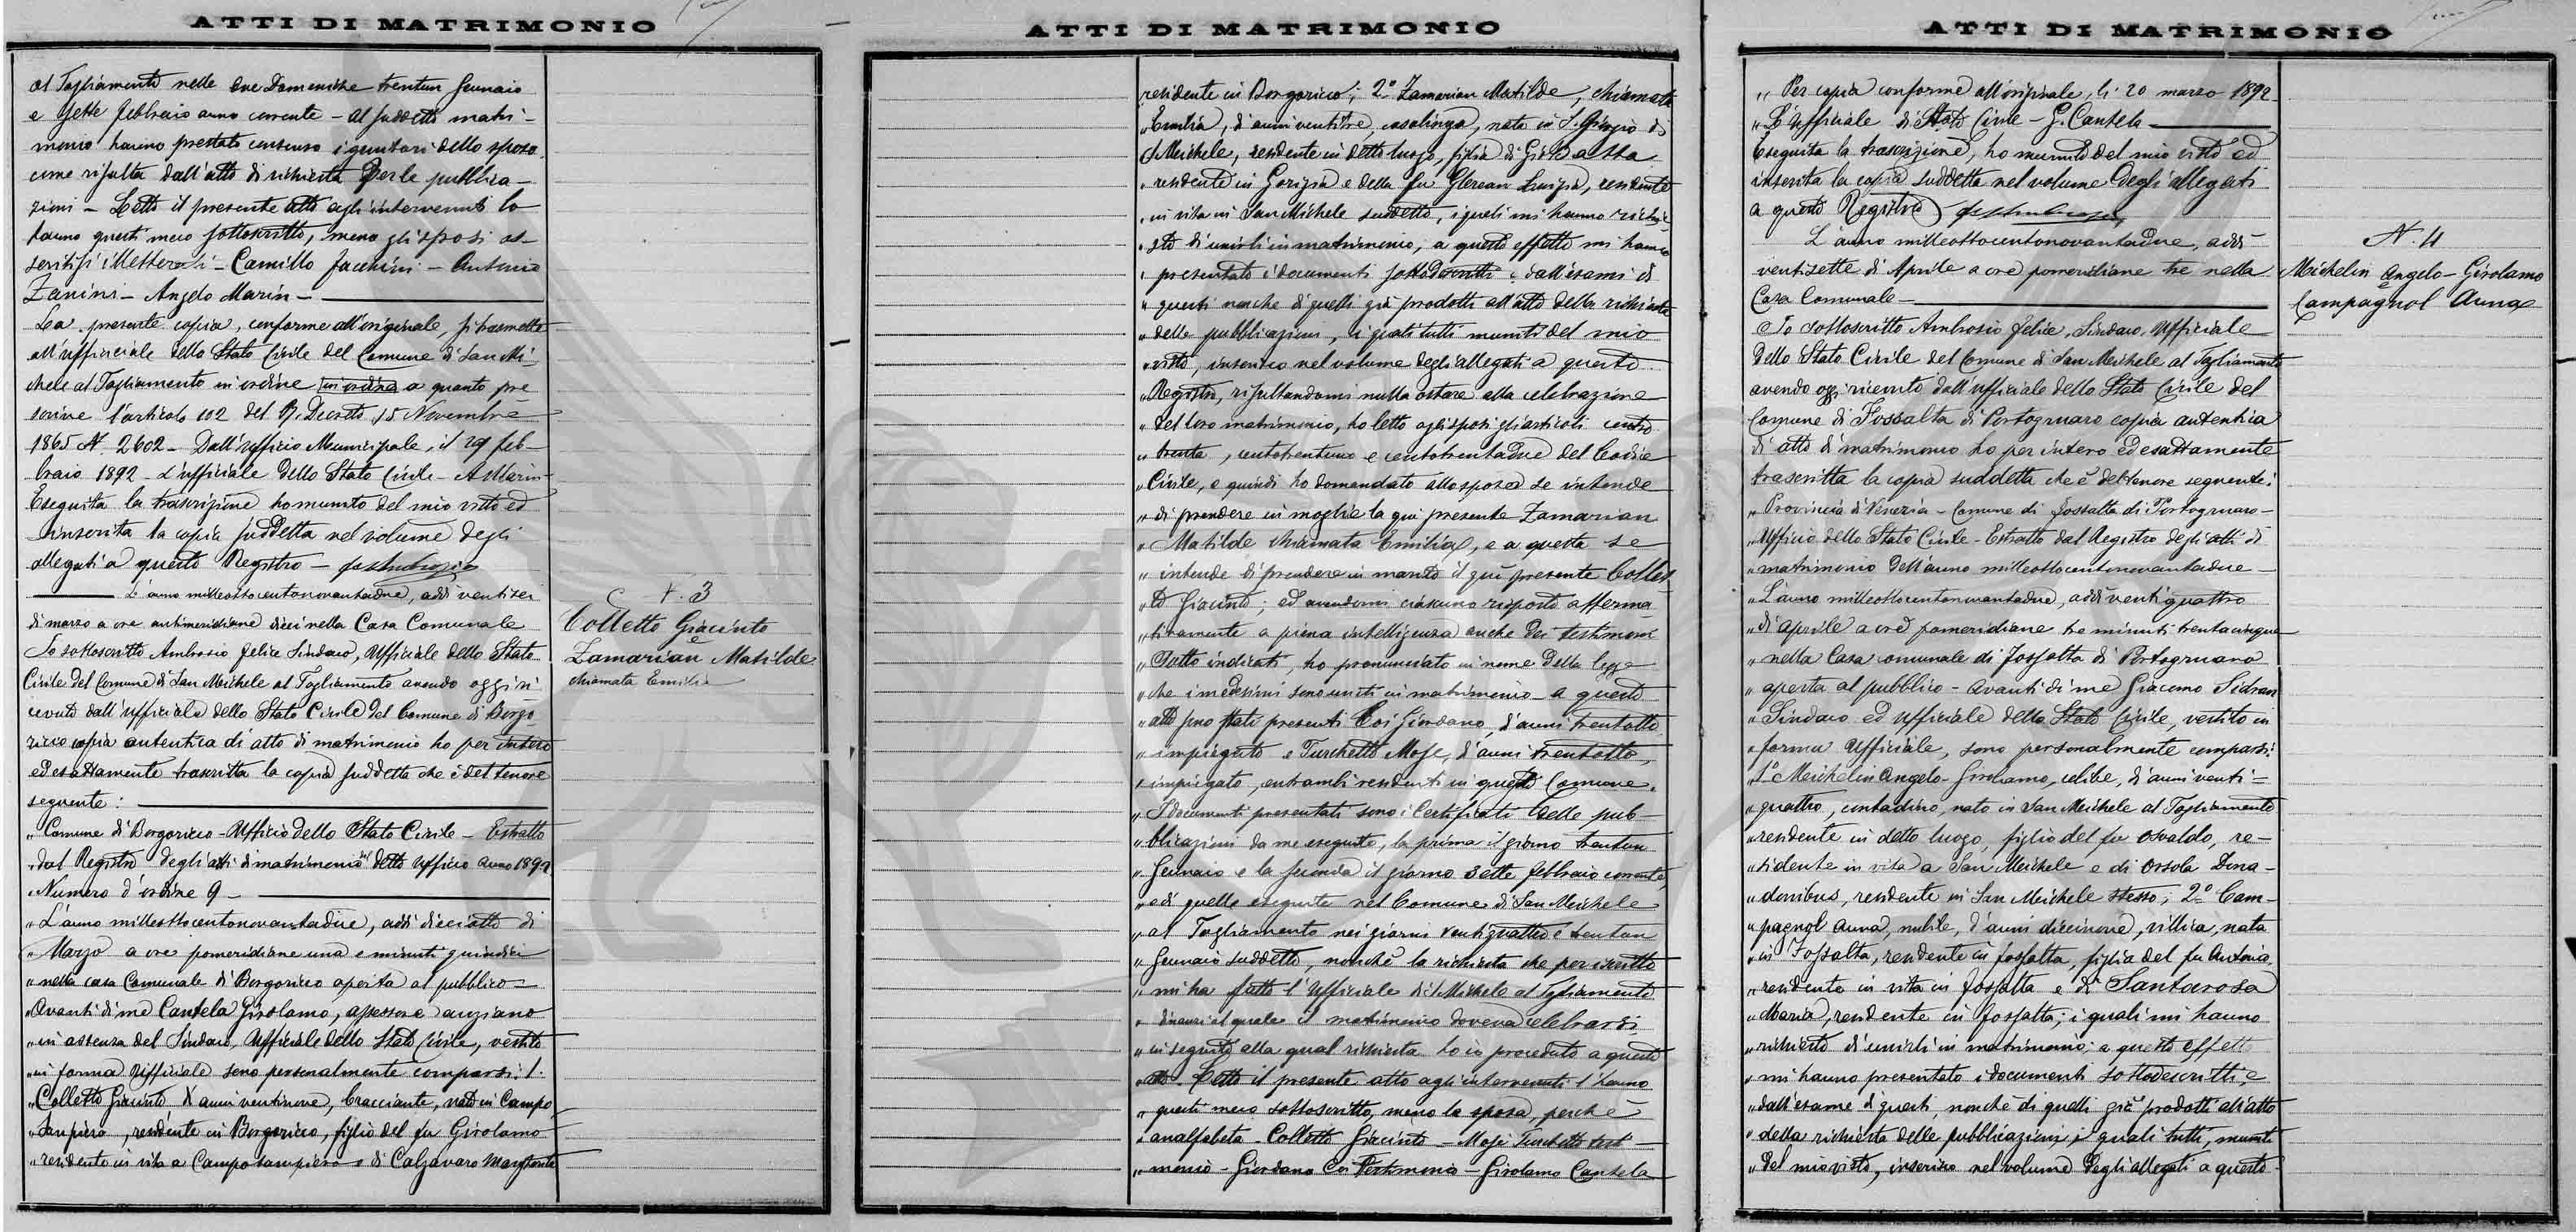 ATTI DI MATRIMONIO
al Tagliamento nelle due Domeniche trentun Gennaio
e sette febbraio anno corrente – Al suddetto matri-
monio hanno prestato consenso i genitori dello sposo
come risulta dall'atto di richiesta per le pubblica-
zioni – Letto il presente atto agli intervenuti lo
hanno questi meco sottoscritto, meno gli sposi as-
seritisi illetterati – Camillo Jacchini – Antonio
Zanini – Angelo Marin –
La presente copia, conforme all'originale, si trasmette
all'ufficiale dello Stato Civile del Comune di San Mi-
chele al Tagliamento in ordine in ordine a quanto pre
scrive l'articolo 102 del R. Decreto 15 Novembre
1865 N. 2602 – Dall'Ufficio Municipale, il 29 feb-
braio 1892 – L'ufficiale dello Stato Civile – A Marin –
Eseguita la trascrizione ho munito del mio visto ed
inserita la copia suddetta nel volume degli
allegati a questo Registro –
L'anno milleottocentonovantadue, addì ventisei
di marzo a ore antimeridiane dieci nella Casa Comunale
Io sottoscritto Ambrosio Felice Sindaco, Ufficiale dello Stato
Civile del Comune di San Michele al Tagliamento avendo oggi ri
cevuto dall'ufficiale dello Stato Civile del Comune di Borgo
ricco copia autentica di atto di matrimonio ho per intero
ed esattamente trascritta la copia suddetta che è del tenore
seguente:
„ Comune di Borgoricco – Ufficio dello Stato Civile – Estratto
„ dal Registro degli atti di matrimonio del detto ufficio anno 1892
„ Numero d'ordine 9 –
„ L'anno milleottocentonovantadue, addì dieciotto di
„ Marzo a ore pomeridiane una e minuti quindici
„ nella casa Comunale di Borgoricco aperta al pubblico –
„ Avanti di me Cantela Girolamo, assessore anziano
„ in assenza del Sindaco, Ufficiale dello Stato Civile, vestito
„ in forma Ufficiale sono personalmente comparsi: 1.
„ Colletto Giacinto d'anni ventinove, bracciante, nato in Campo
„ sanpiero, residente in Borgoricco, figlio del fu Girolamo
„ residente in vita a Camposampiero e di Calzavaro Margherita
N. 3
Colletto Giacinto
e
Zamarian Matilde
chiamata Emilia
ATTI DI MATRIMONIO
residente in Borgoricco; 2° Zamarian Matilde, chiamata
„ Emilia, d'anni ventitre, casalinga, nata in S. Giorgio di
S Michele, residente in detto luogo, figlia di Gio Batta
„ residente in Gorizia e della fu Glerean Luigia, residente
„ in vita in San Michele suddetto, i quali mi hanno richie
„ sto di unirli in matrimonio, a questo effetto mi hanno
„ presentato i documenti sottodescritti e dall'esame di
„ questi nonchè di quelli già prodotti all'atto della richiesta
„ delle pubblicazioni, i quali tutti muniti del mio
„ visto, inserisco nel volume degli allegati a questo
„ Registro, risultandomi nulla ostare alla celebrazione
„ del loro matrimonio, ho letto agli sposi gli articoli cento
„ trenta, centotrentuno e centotrentadue del Codice
„ Civile, e quindi ho domandato allo sposo se intende
„ di prendere in moglie la qui presente Zamarian
„ Matilde chiamata Emilia, e a questa se
„ intende di prendere in marito il quì presente Collet
„ to Giacinto; ed avendomi ciascuno risposto afferma
„ tivamente a piena intelligenza anche dei testimoni
„ Sotto indicati, ho pronunciato in nome della legge
„ che i medesimi sono uniti in matrimonio – a questo
„ atto sono stati presenti Coi Giordano, d'anni trentotto
„ impiegato e Turchetto Mose, d'anni trentotto,
„ impiegato, entrambi residenti in questo Comune.
„ I documenti presentati sono i Certificati delle pub-
„ blicazioni da me eseguite, la prima il giorno trentun
„ Gennaio e la seconda il giorno sette febbraio corrente,
„ e di quelle eseguite nel Comune di San Michele
„ al Tagliamento nei giorni ventiquattro e trentun
„ Gennaio suddetto, nonchè la richiesta che per iscritto
„ mi ha fatto l'Ufficiale di S Michele al Tagliamento
„ dinanzi al quale il matrimonio doveva celebrarsi,
„ in seguito alla qual richiesta ho io proceduto a questo
„ atto. Letto il presente atto agli intervenuti l'hanno
„ questi meco sottoscritto, meno la sposa, perchè
„ analfabeta – Colletto Giacinto – Mosè Turchetto testi-
„ monio – Giordano Coi Testimonio – Girolamo Cantela
ATTI DI MATRIMONIO
„ Per copia conforme all'originale, li 20 marzo 1892 –
„ L'Ufficiale di Stato Civile – G. Cantela –
Eseguita la trascrizione, ho munito del mio visto ed
inserita la copia suddetta nel volume degli allegati
a questo Registro
L'anno milleottocentonovantadue, addì
ventisette di Aprile a ore pomeridiane tre nella
Casa Comunale –
Io sottoscritto Ambrosio Felice, Sindaco, Ufficiale
dello Stato Civile del Comune di San Michele al Tagliamento
avendo oggi ricevuto dall'ufficiale dello Stato Civile del
Comune di Fossalta di Portogruaro copia autentica
di atto di matrimonio ho per intero ed esattamente
trascritta la copia suddetta che è del tenore seguente:
„ Provincia di Venezia – Comune di Fossalta di Portogruaro –
„ Ufficio dello Stato Civile – Estratto dal Registro degli atti di
„ matrimonio dell'anno milleottocentonovantadue –
„ L'anno milleottocentonovantadue, addì ventiquattro
„ di aprile a ore pomeridiane tre minuti trentacinque
„ nella Casa comunale di Fossalta di Portogruaro
„ aperta al pubblico – Avanti di me Giacomo Sidran
„ Sindaco ed ufficiale dello Stato Civile, vestito in
„ forma Ufficiale, sono personalmente comparsi:
„ 1° Michelin Angelo-Girolamo, celibe, di anni venti-
„ quattro, contadino, nato in San Michele al Tagliamento
„ residente in detto luogo, figlio del fu Osvaldo, re-
„ sidente in vita a San Michele e di Orsola Dona-
„ donibus, residente in San Michele stesso; 2° Cam-
„ pagnol Anna, nubile, d'anni diecinove, villica, nata
„ in Fossalta, residente in Fossalta, figlia del fu Antonio,
„ residente in vita in Fossalta e di Santarosa
„ Maria, residente in Fossalta; i quali mi hanno
„ richiesto di unirli in matrimonio; a questo effetto
„ mi hanno presentato i documenti sottodescritti, e
„ dall'esame di questi nonchè di quelli già prodotti all'atto
„ della richiesta delle pubblicazioni, i quali tutti, muniti
„ del mio visto, inserisco nel volume degli allegati a questo
N. 4
Michelin Angelo-Girolamo
e
Campagnol Anna